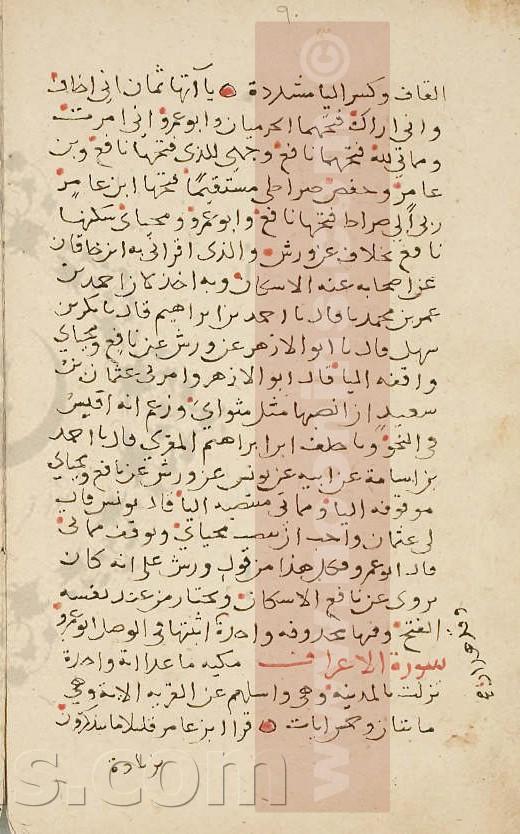 ٩
القاف وكسر اليا مشددة يا آتها ثمان اني اخاف
واني اراك فتحهما الحرميان وابو عمرو اني امرت
ومماتي لله فتحهما نافع وجهي للذي فتحها نافع وبن
عامر وحفص صراطي مستقيما فتحها ابن عامر
ربي الي صراط فتحها نافع وابو عمرو ومحياي سكنها
نافع بخلاف عن ورش والذي اقراني به ابن خاقان
عن اصحابه عنه الاسكان وبه اخذ لان احمد بن
عمر بن محمد نا قال نا احمد بن ابراهيم قال نا بكر بن
سهل قال نا ابو الازهر عن ورش عن نافع ومحياي
واقفة اليا قال ابو الازهر وامرني عثمان بن
سعيد ان انصبها مثل مثواي وزعم انه اقيس
في النحو ونا خلف ابن ابراهيم المقري قال نا احمد
بن اسامة عن ابيه عن يونس عن ورش عن نافع ومحياي
موقوفه اليا ومماتي منتصبه اليا قال يونس قال
لي عثمان واحب ان تنصب محياي وتوقف مماتي
قال ابو عمرو فدل هذا من قول ورش على انه كان
يروي عن نافع الاسكان ويختار من عند نفسه
الفتح وفيها محذوفه واحدة اثبتها في الوصل ابو عمرو
سورة الاعراف مكيه ما عدا اية واحدة
نزلت بالمدينة وهي واسلهم عن القريه الاية وهي
مايتان وخمس ايات قرا ابن عامر قليلا ما يتذكرون
بزيادة
s.com